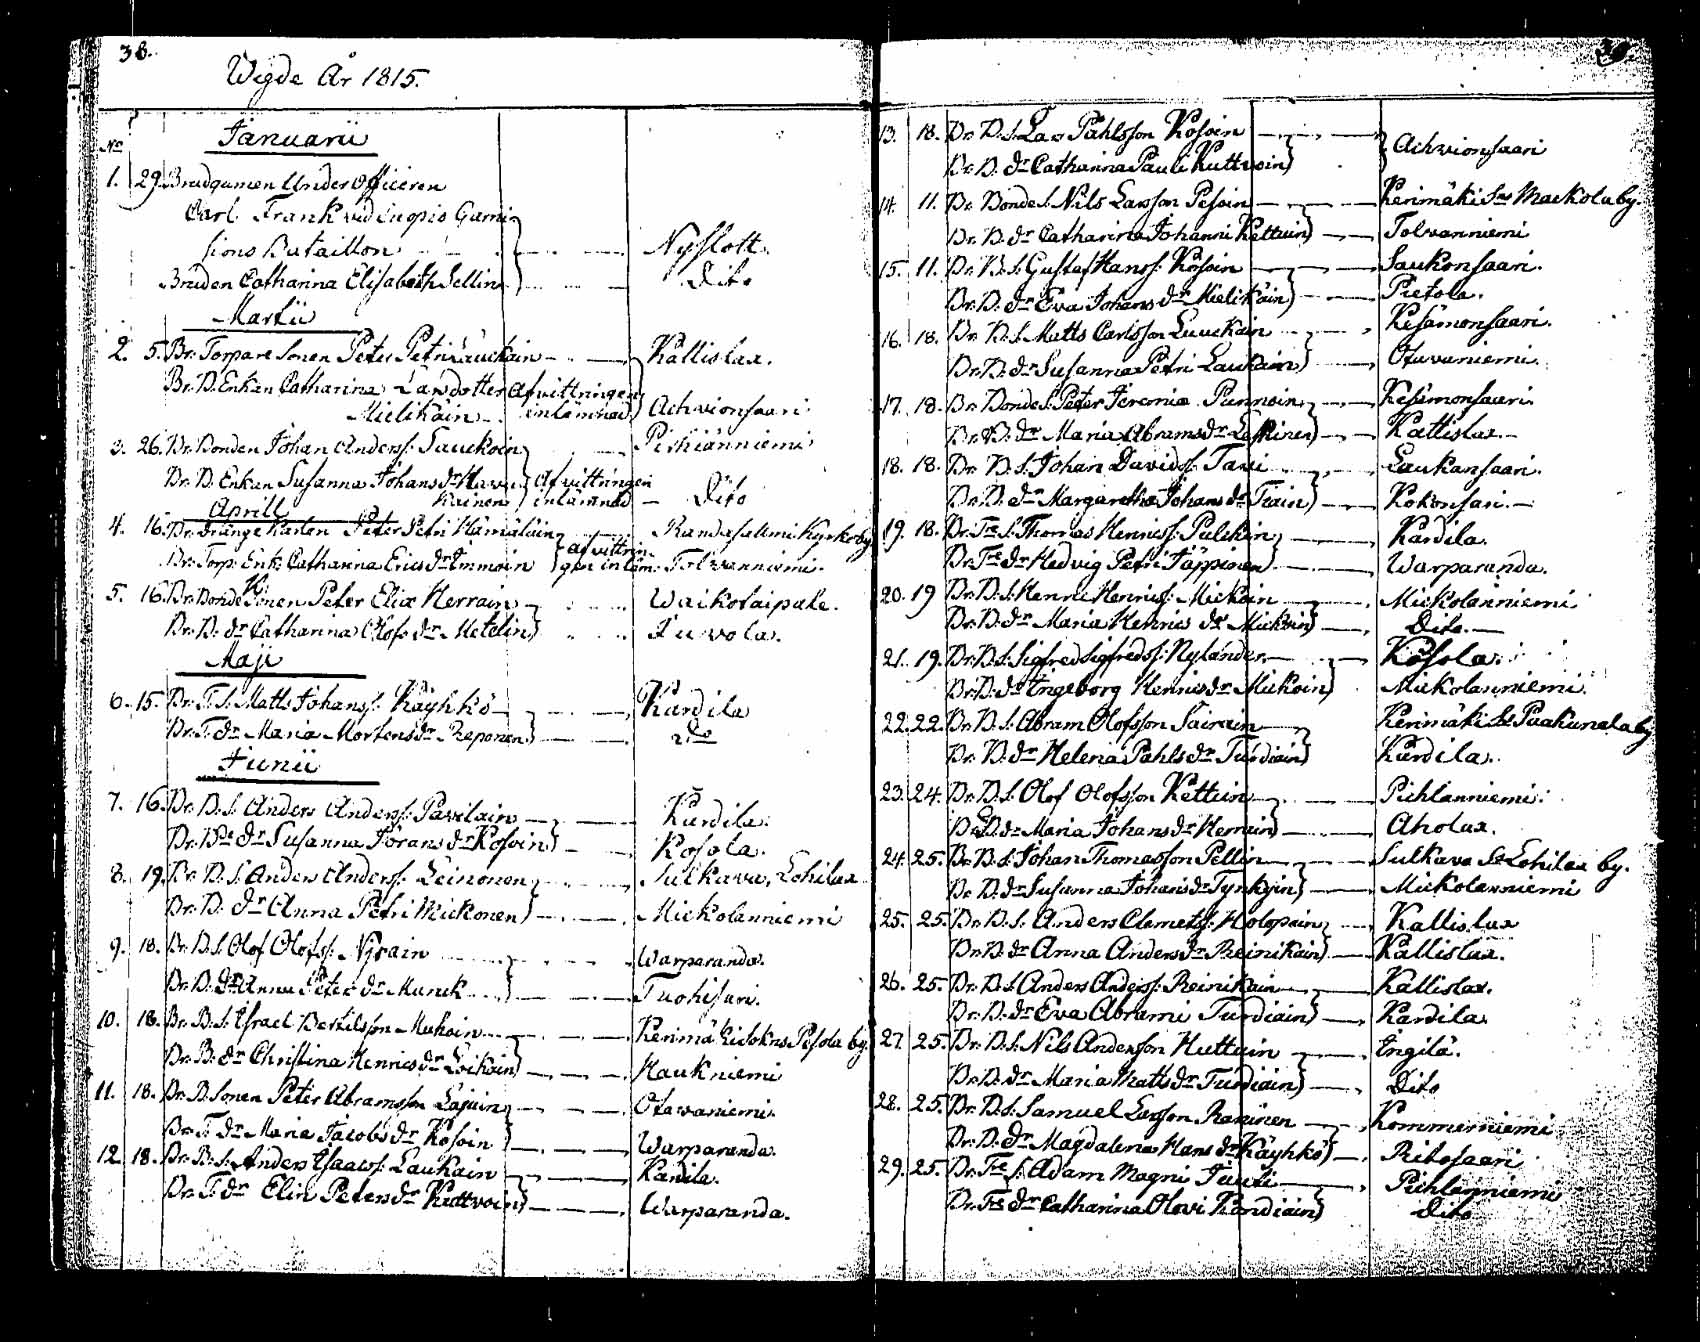 38.
Wigde År 1815.
No
Januarii
1. 29. Brudgumen Under Officeren
Carl Frank vid Cuopio Garni
sions Bataillon Nyslott.
Bruden Catharina Elisabeth Sellin Dito
Martii
2. 5. Br. Torpare Sonen Peter Petri Lauckain Kallislax.
Br. B. Enkan Catharina Larsdotter Afvittringen
Mielikäin inlämnad Achvionsaari
3. 26. Br. Bonden Johan Anderss: Lauckoin Pihlianniemi
Br. B. Enkan Susanna Johans dr Havu Afvittringen
kainen inlämnad Dito
Aprill
4. 16. Br. Dränge Karlen Peter Petri Hämäläin Randasalmi Kyrkoby
Br. Torp. Enk. Catharina Erics dr Immoin afvittrin-
gen inläm. Tolvanniemi.
5. 16. Br. Bonde Sonen Peter Eliæ Herrain Waikolaipale.
Br. B. dr Catharina Olofs dr Metelin Juvola.
Maji
6. 15. Br. T. S. Matts Johanss: Käyhkö Kardila
Br. T. dr Maria Mortens dr Reponen Do
Junii
7. 16. Br. B. S. Anders Anderss: Pavilain Kardila.
Br. Be dr Susanna Jörans dr Kosoin Kosola.
8. 19. Br. B. S. Anders Anderss: Leinonen Sulkava, Lohilax
Br. B. dr Anna Petri Mickonen Mickolanniemi
9. 18. Br. B. S. Olof Olofss: Nyrain Warparanda.
Br. B. dr Anna Peter dr Munck Tuohisari.
10. 18. Br. B. S. Israel Bertilsson Muhoin Kerimäki Sokns Pesola by.
Br. B. dr Christina Henrics dr Loikain Haukniemi
11. 18. Br. B. Sonen Peter Abramsson Lajain Otavaniemi.
Br. T. dr Maria Jacobs dr Kosoin Warparanda.
12. 18. Br. B. S. Anders Isaacss: Laukain Kardila.
Br. T. dr Elin Peters dr Kuttvoin Warparanda.
39.
13. 18. Br. B. S. Lars Påhlsson Kosoin
Br. B. dr Catharina Pauli Kuttvoin Achvionsaari
14. 11. Br. Bonde S. Nils Larsson Pesoin Kerimäki Sns Mackola by.
Br. B. dr Catharina Johanni Kettuin Tolvanniemi
15. 11. Br. B. S. Gustaf Hanss: Kosoin Saukonsaari.
Br. B. dr Eva Johans dr Mielikäin Pietola.
16. 18. Br. B. S. Matts Carlsson Luuckain Kesämonsaari.
Br. B. dr Susanna Petri Laukain Otavaniemi.
17. 18. Br. Bonde S. Peter Jeremiæ Punnoin Kesämonsaari
Br. B. dr Maria Abrams dr Laskinen Kallislax.
18. 18. Br. B. S. Johan Davidss: Tavi Laukansaari.
Br. B. dr Margaretha Johans dr Tiain Kokonsari.
19. 18. Br. Te S. Thomas Henricss: Pulckin Kardila.
Br. Te dr Hedvig Petri Täppinen Warparanda.
20. 19 Br. B. S. Henric Henricss: Mickoin Mickolanniemi
Br. B. dr Maria Henrics dr Mickoin Dito.
21. 19. Br. B. S. Sigfred Sigfredss: Nylander Kosola.
Br. B. dr Ingeborg Henrics dr Mickoin Mickolanniemi.
22. 22. Br. B. S. Abram Olofsson Sairain Kerimäki Sn Paakunala by
Br. B. dr Helena Påhls dr Turdiain Kardila.
23. 24. Br. B. S. Olof Olofsson Kettuin Pihlanniemi.
Br. B. dr Maria Johans dr Herrain Aholax.
24. 25. Br. B. S. Johan Thomasson Pellin Sulkava Sn Lohilax by.
Br. B. dr Susanna Johans dr Tynkyin Mickolanniemi
25. 25. Br. B. S. Anders Clemetss: Holopain Kallislax
Br. B. dr Anna Anders dr Reinikain Kallislax.
26. 25. Br. B. S. Anders Anderss: Reinikain Kallislax.
Br. B. dr Eva Abrami Turdiain Kardila.
27. 25. Br. B. S. Nils Anderson Huttuin Engilä.
Br. B. dr Maria Matts dr Turdiain Dito
28. 25. Br. B. S. Samuel Larsson Raninen Kommerniemi
Br. B. dr Magdalena Hans dr Käyhkö Ritosaari
29. 25. Br. Te S. Adam Magni Juuti Pihlanniemi
Br. Te dr Catharina Olovi Kandiain Dito